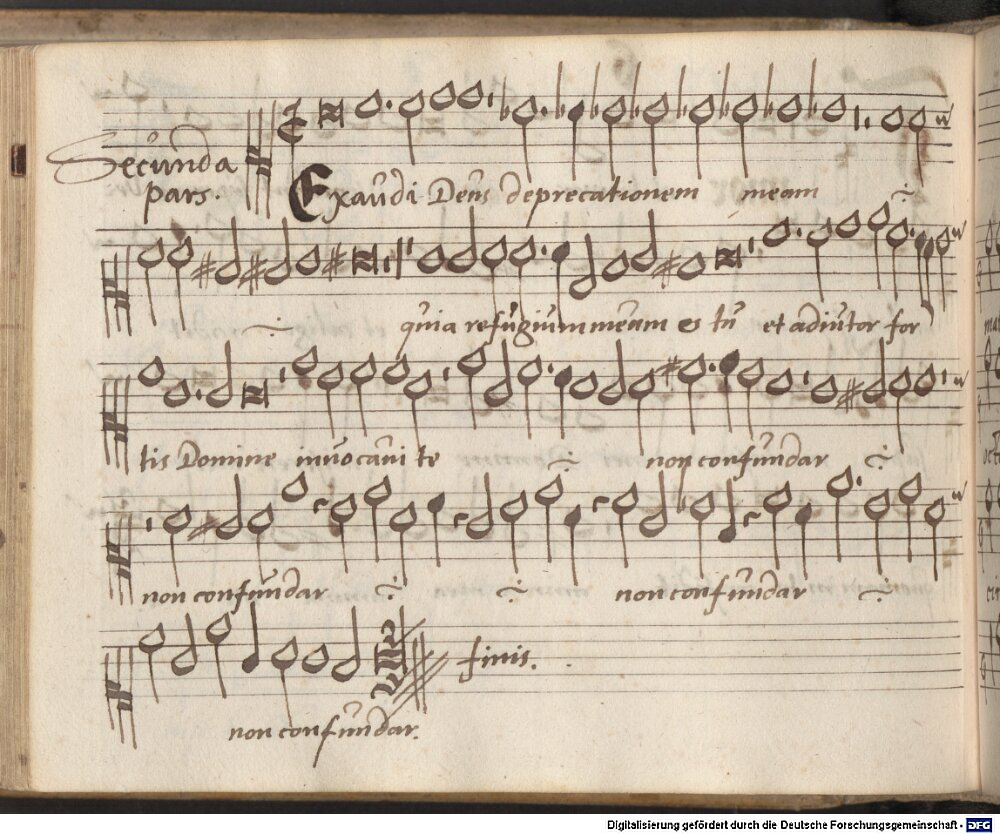 Secunda
pars.
Exaudi Deus deprecationem meam
quia refugium meum es tu et adiutor for
tis Domine invocavi te non confundar
non confundar non confundar
non confundar.
finis.
Digitalisierung gefördert durch die Deutsche Forschungsgemeinschaft - DFG